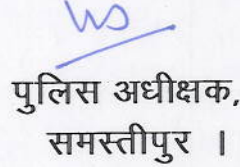 पुलिस अधीक्षक,
समस्तीपुर ।